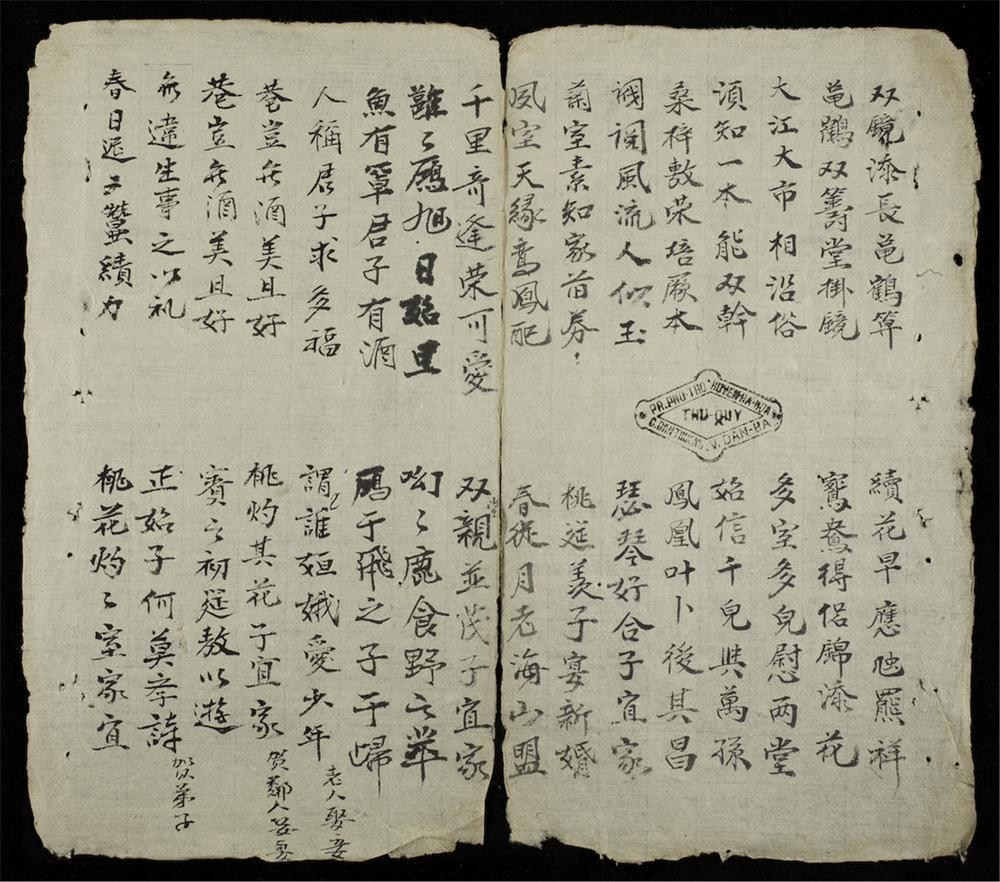 双鏡添長龟鶴算
續花早應虺羆祥
龟鶴双籌堂掛鏡
鴛鴦得侣錦添花
大江大市相沿俗
多室多兒慰两堂
湏知一本能双幹
始信千兒兴萬孫
桑梓敷荣培厥本
鳳凰叶卜後其昌
调调風流人似玉
瑟琴好合子宜家
蘭室素知家首
桃筵羡子宴新婚
夙室天緣鸞鳳配
春從月老海山盟
千里奇逢荣可愛
双親並茂子宜家
堂
雝〻鴈旭日始旦
呦〻鹿食野之苹
魚有罩君子有酒
鴈于飛之子于歸
人稱君子求多福
謂誰姮娥愛少年
老人娶妾
巷豈无酒美且好
桃灼其花子宜家
贺鄰人娶妻
巷豈无酒美且好
賓之初筵敖以遊
无違生事之以礼
正始子何莫孝詩
贺弟子
春日迟〻蠶績力
桃花灼〻室家宜
PR.PHU-THO HUYEN HA-HOA
THU-QUY
C.DAN THUONG V. DAN-HA